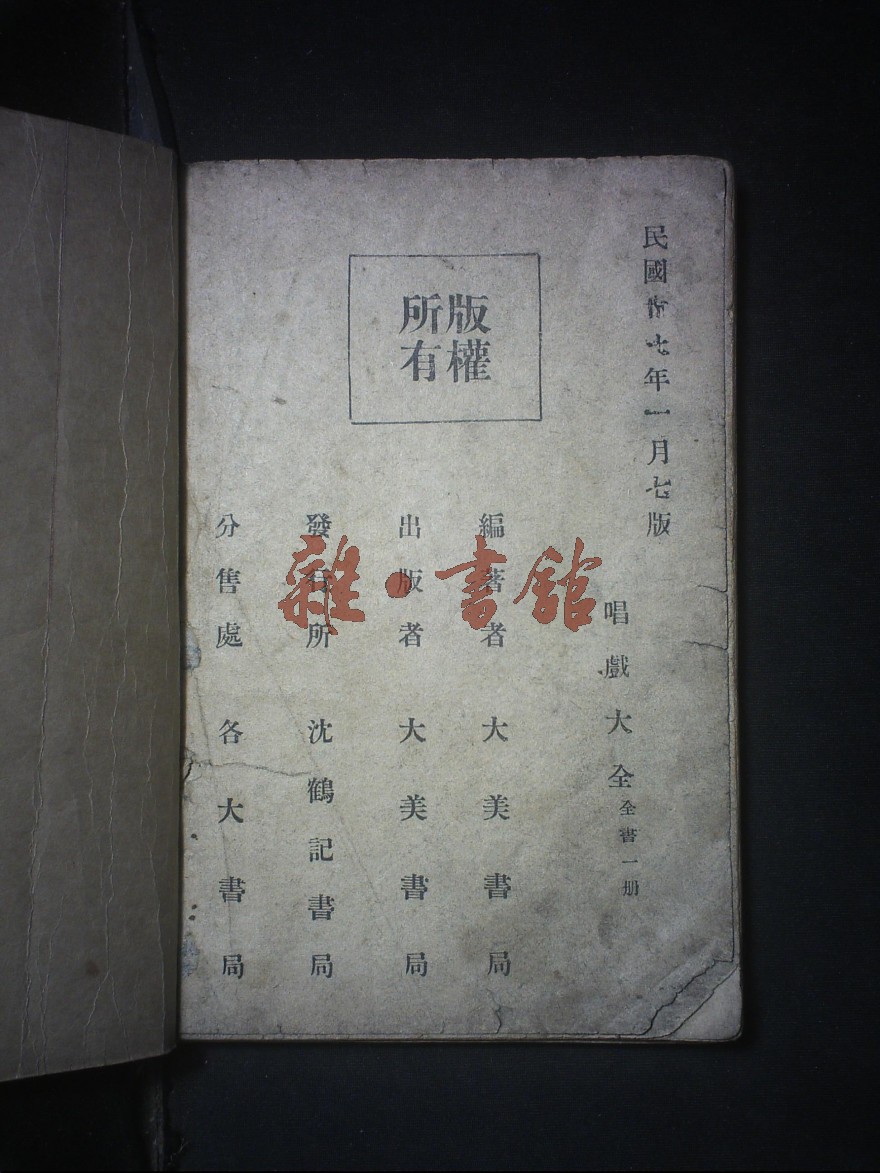 民國 七年一月七版
版權
所有
唱戲大全 全書一册
編著者 大美書局
出版者 大美書局
發行所 沈鶴記書局
分售處 各大書局
雜·書館